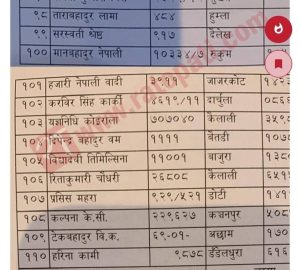 ९८ ताराबहादुर लामा ४८४ हुम्ला
९९ सरस्वती श्रेष्ठ ९१७ दैलेख
१०० मानबहादुर नेपाली १०३३४/७ रुकुम
१०१ हजारी नेपाली वादी ३९११ जाजरकोट १४२
१०२ करविर सिंह कार्की ४६१९/११ दार्चुला ०८६
१०३ यज्ञनिधि कोइराला ७०७०४० कैलाली ३५९
१०४ दिपेन्द्र बहादुर वम ११११ बैतडी १०७
१०५ विद्यादेवी तिमिल्सिना ११००१ बाजुरा १३८
१०६ रिताकुमारी चौधरी २६८०८ कैलाली
१०७ प्रसिस महरा ९२९/५२१ डोटी १४१
१०८ कल्पना के.सी. २२९६२७ कञ्चनपुर ५०
१०९ टेकबहादुर वि.क. ६९-०१- अछाम १७०
११० हरिना कामी ९८७८ डँडेलधुरा ६१